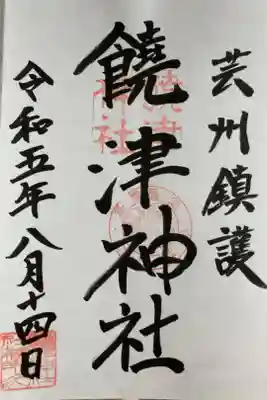 芸州鎮護
饒津神社
令和五年八月十四日